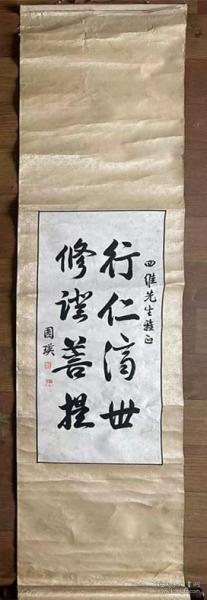 四維先生雅正
行仁濟世
修證菩提